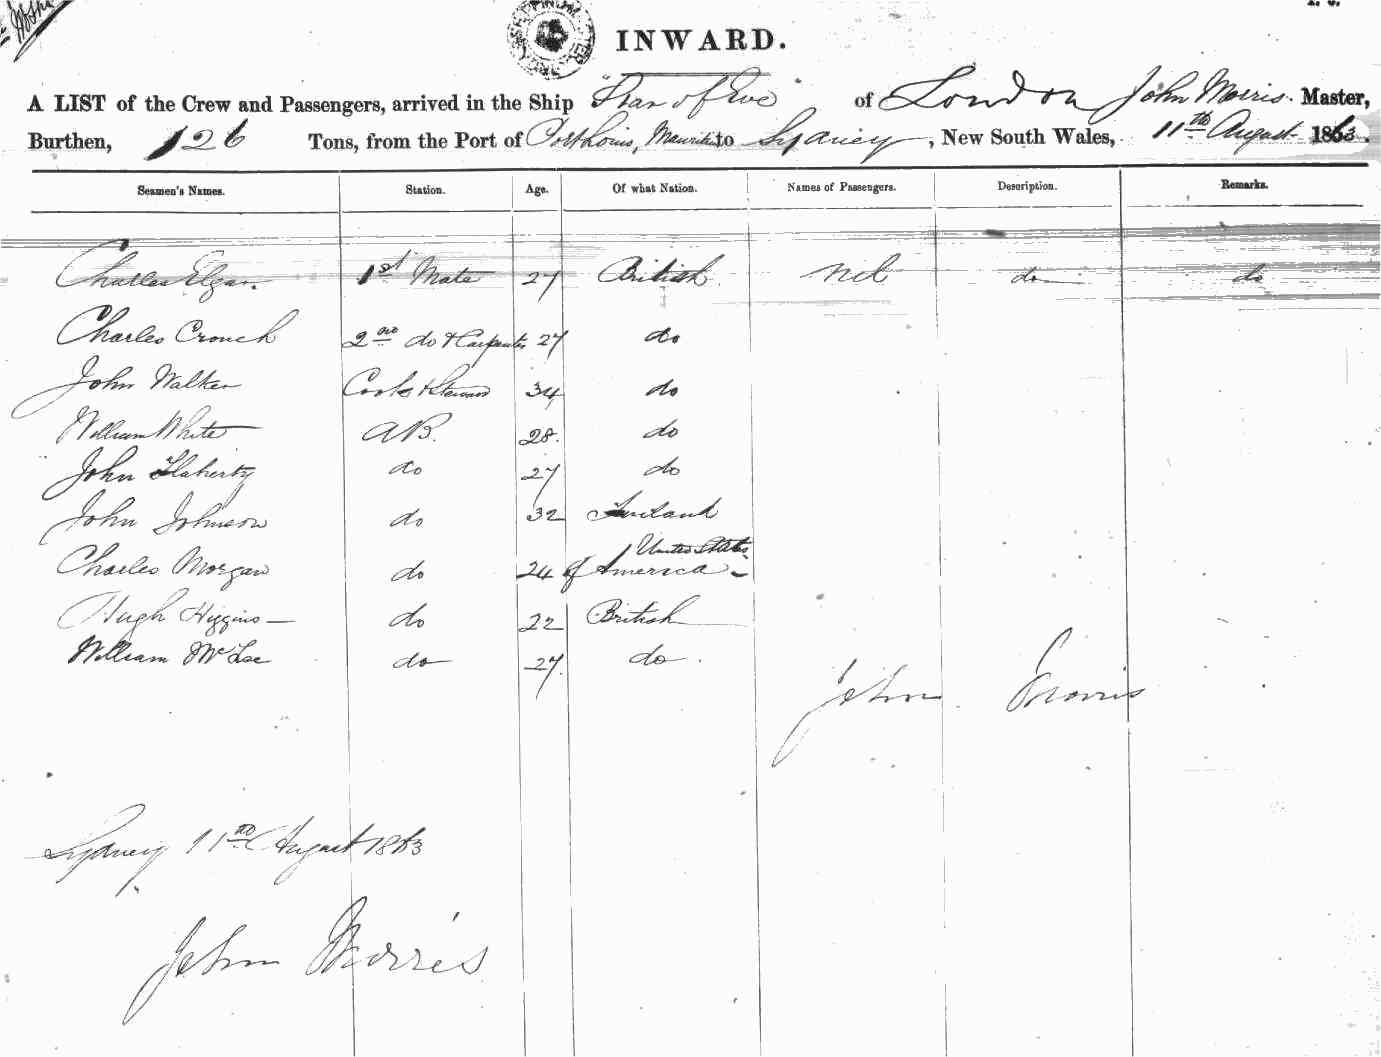 INWARD.
A LIST of the Crew and Passengers, arrived in the Ship "Star of Eve" of London John Morris Master,
Burthen, 126 Tons, from the Port of Port Louis, Mauritius to Sydney, New South Wales, 11th August 1863.
Seamen's Names. Station. Age. Of what Nation. Names of Passengers. Description. Remarks.
Charles Elgar. 1st Mate 27 British nil do do
Charles Crouch 2nd do & Carpenter 27 do
John Walker Cook & Steward 34 do
William White AB. 28. do
John Flaherty do 27 do
John Johnson do 32
Charles Morgan do 24 United States of America
Hugh Higgins do 22 British
William do 27. do.
John Morris
Sydney 11th August 1863
John Morris